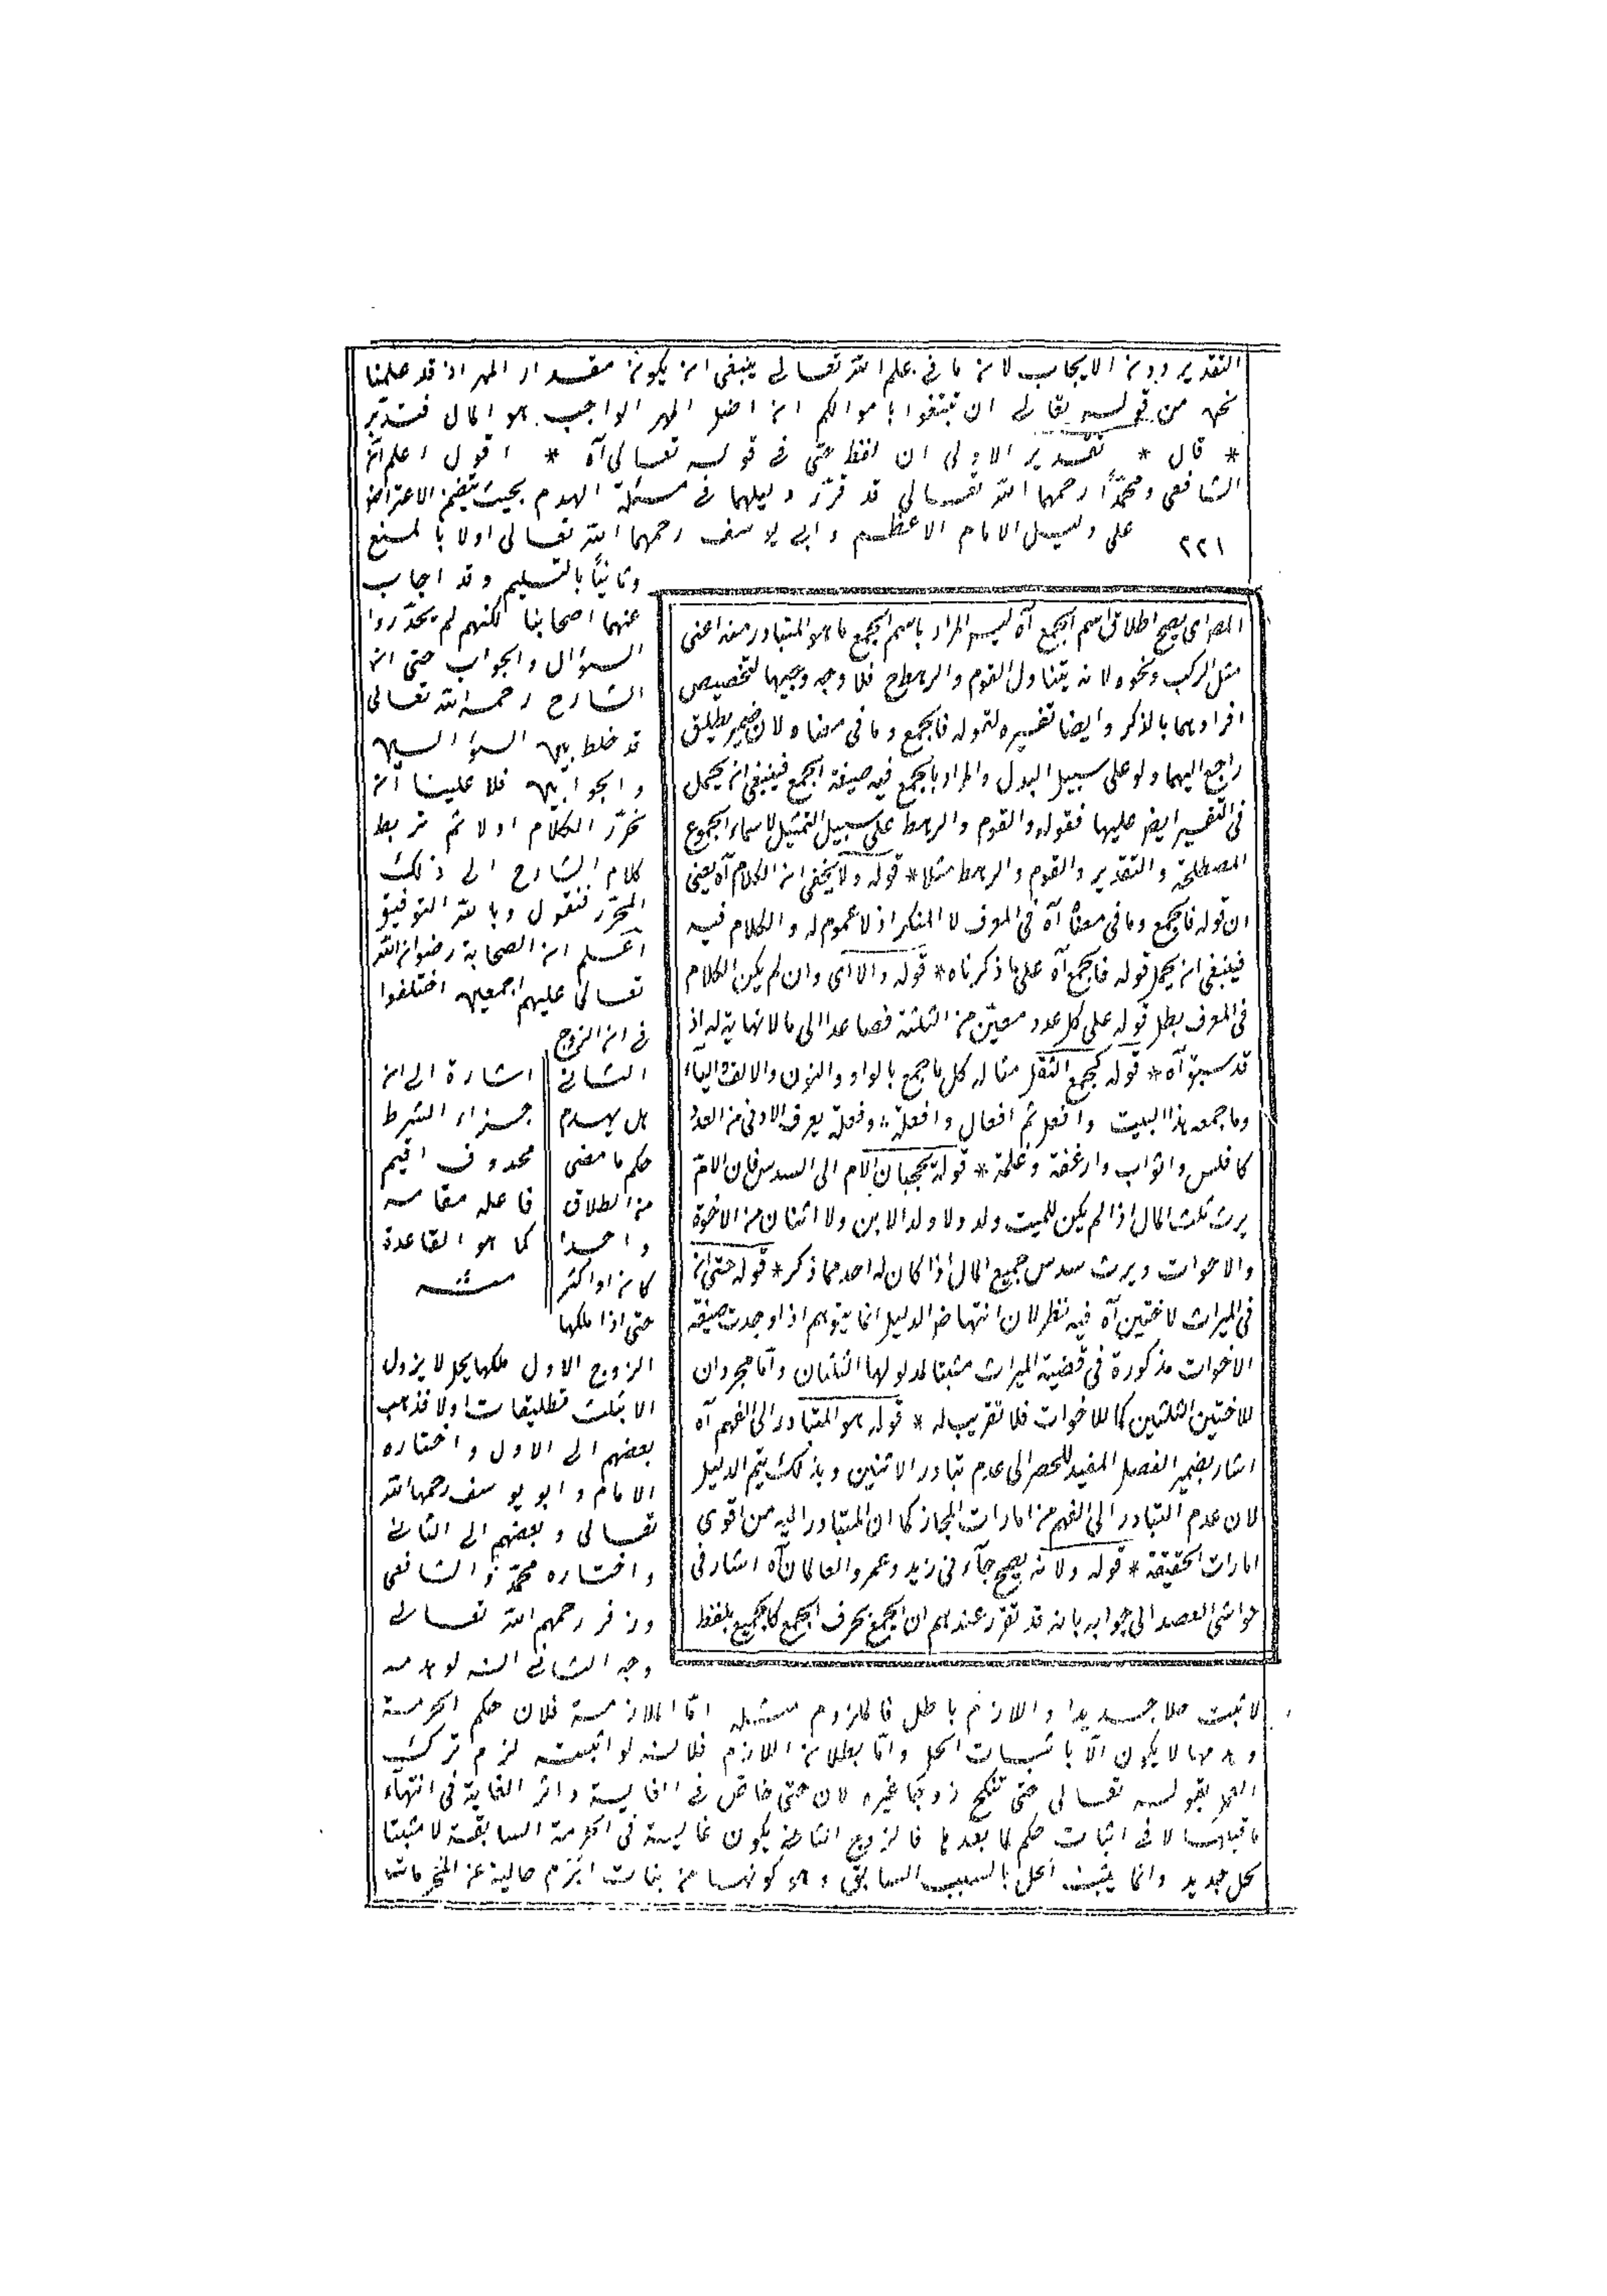 التقدير دون الايجاب لان ما فى علم الله تعالى ينبغى ان يكون مقدار المهر اذ قد علمنا
نحن من قوله تعالى ان تبتغوا باموالكم ان اصل المهر الواجب هو المال فتدبر
* قال * تقدير الاولى ان لفظ حتى فى قوله تعالى آه * اقول اعلم ان
الشافعى ومحمدًا رحمهما الله تعالى قد قرّر دليلهما فى مسئلة الهدم بحيث يتضمن الاعتراض
٢٢١ على دليل الامام الاعظم وابى يوسف رحمهما الله تعالى اولا بالمنع
وثانيًا بالتسليم وقد اجاب
عنهما اصحابنا لكنهم لم يحرّروا
السؤال والجواب حتى ان
الشارح رحمه الله تعالى
قد خلط بين السؤالين
والجوابين فلا علينا ان
نحرّر الكلام اولا ثم نربط
كلام الشارح الى ذلك
المحرّر فنقول وبالله التوفيق
اعلم ان الصحابة رضوان الله
تعالى عليهم اجمعين اختلفوا
فى ان الزوج
الثانى
هل يهدم
حكم ما مضى
من الطلاق
واحدا
كان او اكثر
حتى اذا ملكها
الزوج الاول ملكها بحل لا يزول
الا بثلث تطليقات اولا فذهب
بعضهم الى الاول واختاره
الامام وابو يوسف رحمهما الله
تعالى وبعضهم الى الثانى
واختاره محمّد والشافعى
وزفر رحمهم الله تعالى
وجه الثانى انه لو هدمه
لاثبت حلا جديدا واللازم باطل فالملزوم مثله امّا الملازمة فلان حكم الحرمة
وهدمها لا يكون الّا باثبات الحل وامّا بطلان اللازم فلانه لو اثبته لزم ترك
العمل بقوله تعالى حتى تنكح زوجًا غيره لان حتى خاصّ فى الغاية واثر الغاية فى انتهاء
ما قبلها لا فى اثبات حكم لما بعدها فالزوج الثانى يكون غاية فى الحرمة السابقة لا مثبتا
لحل جديد وانما يثبت الحل بالسبب السابق وهو كونها من بنات آدم خالية عن المحرمات
اشارة الى ان
جزاء الشرط
محذوف اقيم
فاعله مقامه
كما هو القاعدة
منه
المص اى يصح اطلاق اسم الجمع آه ليس المراد باسم الجمع ما هو المتبادر منه اعنى
مثل الركب ونحوه لانه يتناول القوم والرهط ح فلا وجه وجيها لتخصيص
افرادهما بالذكر وايضا تفسيره لقوله فالجمع وما فى معناه ولان ضمير يطلق
راجع اليهما ولو على سبيل البدل والمراد بالجمع فيه صيغة الجمع فينبغى ان يحمل
فى التفسير ايض عليها فقوله والقوم والرهط على سبيل التمثيل لاسماء الجموع
المصطلحة والتقدير والقوم والرهط مثلا * قوله ولا يخفى ان الكلام آه يعنى
ان قوله فالجمع وما فى معناه آه فى المعرف لا المنكر اذ لا عموم له والكلام فيه
فينبغى ان يحمل قوله فالجمع آه على ما ذكرناه * قوله والا اى وان لم يكن الكلام
فى المعرف بطل قوله على كل عدد معيّن من الثلثة فصاعدا الى ما لا نهاية له اذ
قد سبق آه * قوله كجمع القلّة مثاله كل ما جمع بالواو والنون والالف والتاء
وما جمعه هذا البيت وافعل ثم افعال وافعلة * وفعلة يعرف الادنى من العدد
كافلس واثواب وارغفة وغلمة * قوله يحجبان الام الى السدس فان الامّ
يرث ثلث المال اذا لم يكن للميت ولد ولا ولد الابن ولا اثنان من الاخوة
والاخوات ويرث سدس جميع المال اذا كان له احد مما ذكر * قوله حتى ان
فى الميراث للاختين آه فيه نظر لان انتهاض الدليل انما يتوهم اذا وجدت صيغة
الاخوات مذكورة فى قضية الميراث مثبتا لمدلولها الثلثان وامّا مجرد ان
للاختين الثلثين كما للاخوات فلا تقريب له * قوله هو المتبادر الى الفهم آه
اشار بضمير الفصل المفيد للحصر الى عدم تبادر الاثنين وبذلك يتم الدليل
لان عدم التبادر الى الفهم من امارات المجاز كما ان المتبادر اليه من اقوى
امارات الحقيقة * قوله ولانه يصح جآء فى زيد وعمرو العالمان آه اشار فى
حواشى العضد الى جوابه بانه قد تقرر عندهم ان الجمع بحرف الجمع كالجمع بلفظ